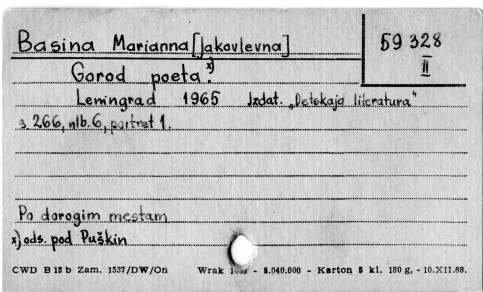 Basina Marianna [Jakovlevna]
59 328
II
Gorod poeta. x)
Leningrad 1965 Izdat. „Detskaja literatura"
s. 266, nlb. 6, portret 1.
Po dorogim mestam
x) ods. pod Puškin
CWD B 15 b Zam. 1537/DW/On Wrak - 8.040.000 - Karton 5 kl. 180 g, - 10.XII.68.